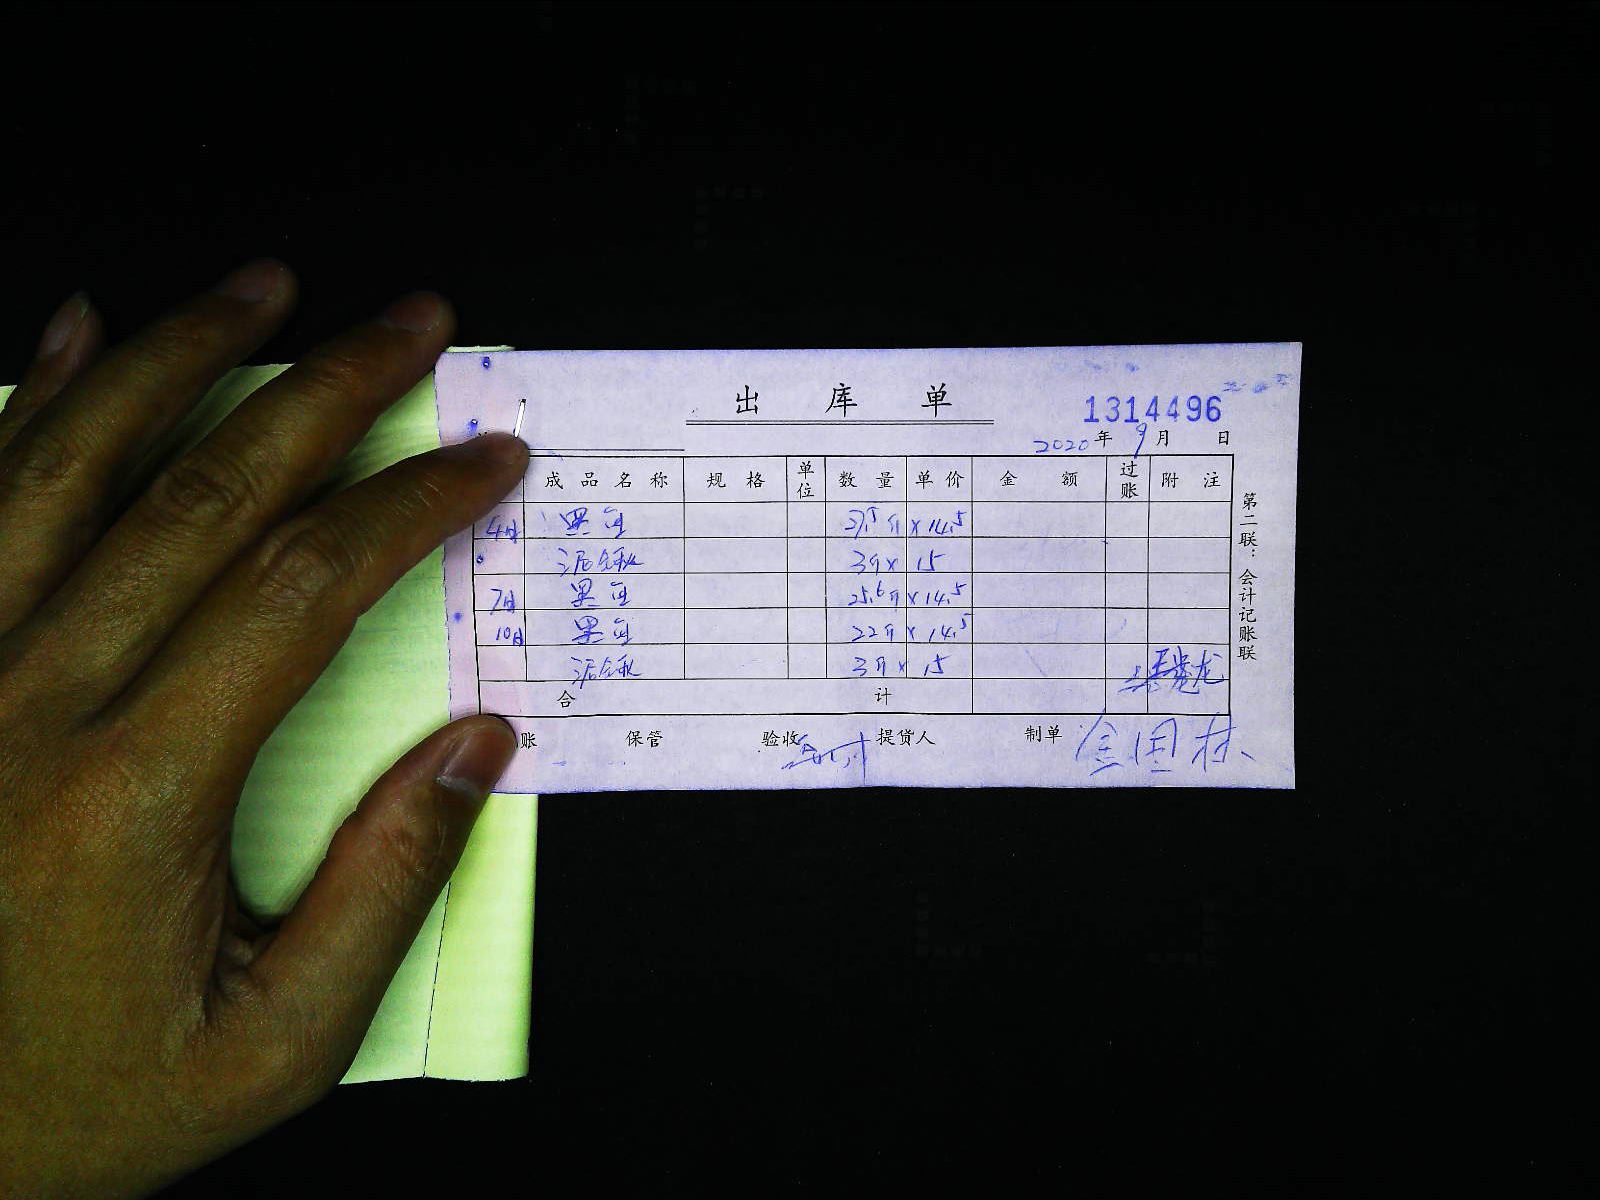 出 库 单
1314496
2020年 9月 日
成品名称 规格 单位 数量 单价 金额 过账 附注
4日 黑鱼 × 14.5
泥鳅 3斤× 15
7日 黑鱼 25.6斤 ×14.5
10日 黑鱼 22斤 × 14.5
泥鳅 3斤× 15
合 计
账 保管 验收 提货人 制单 金国林
第二联：会计记账联